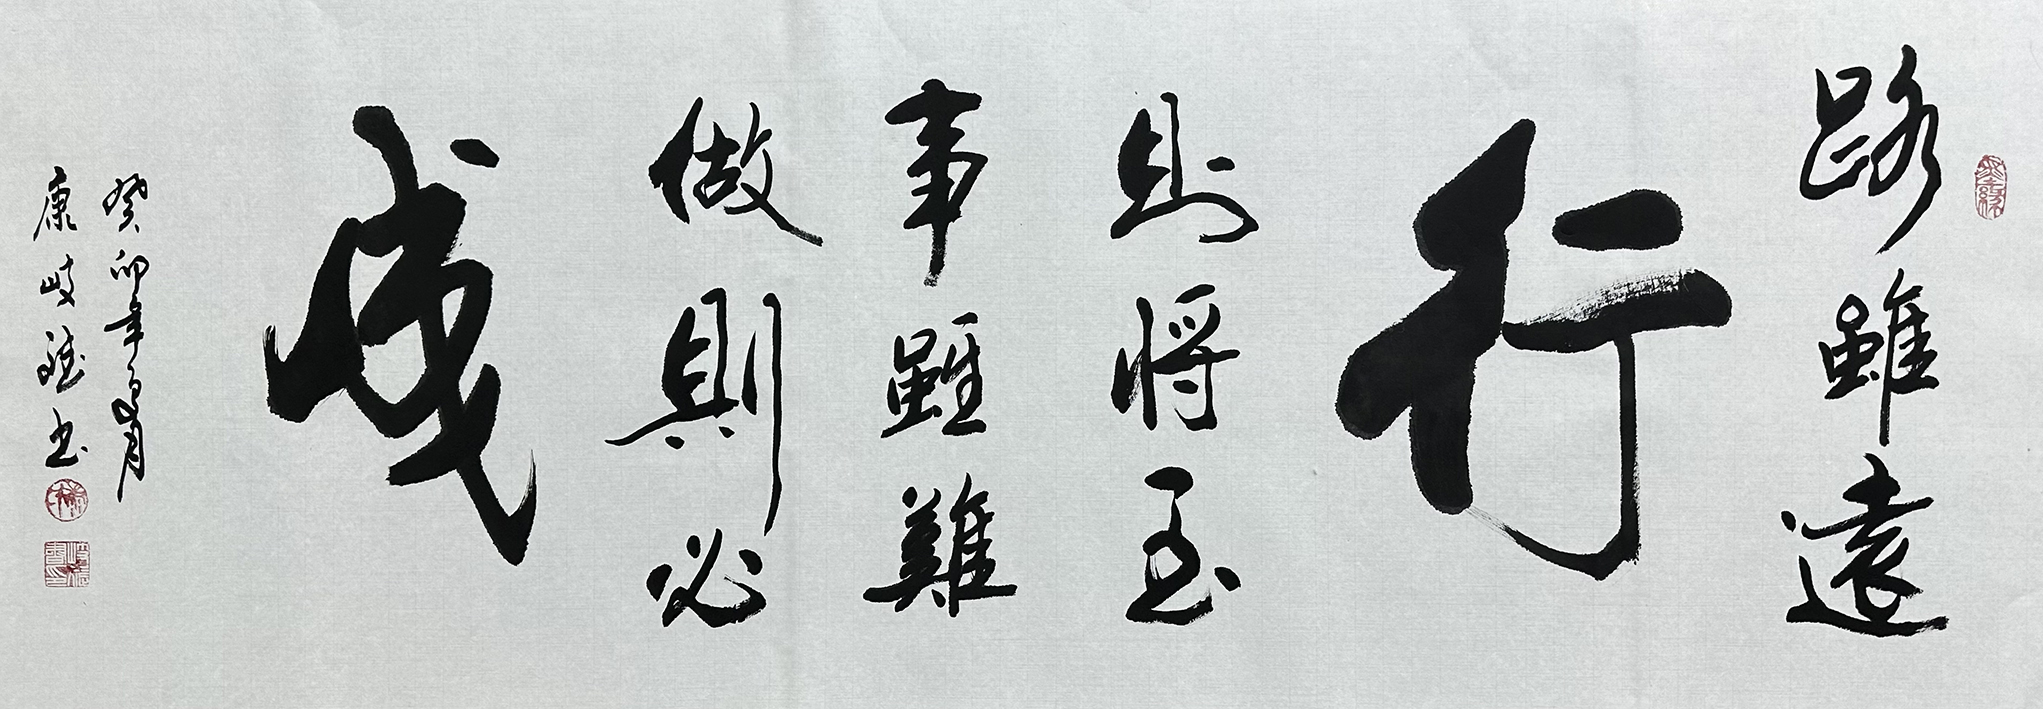 路雖遠
行
則將至
事雖難
做則必
成
癸卯年夏月
康岐
書